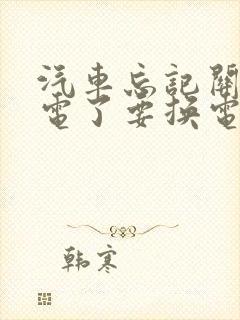 汽車忘記關
電了要換電
韩寒